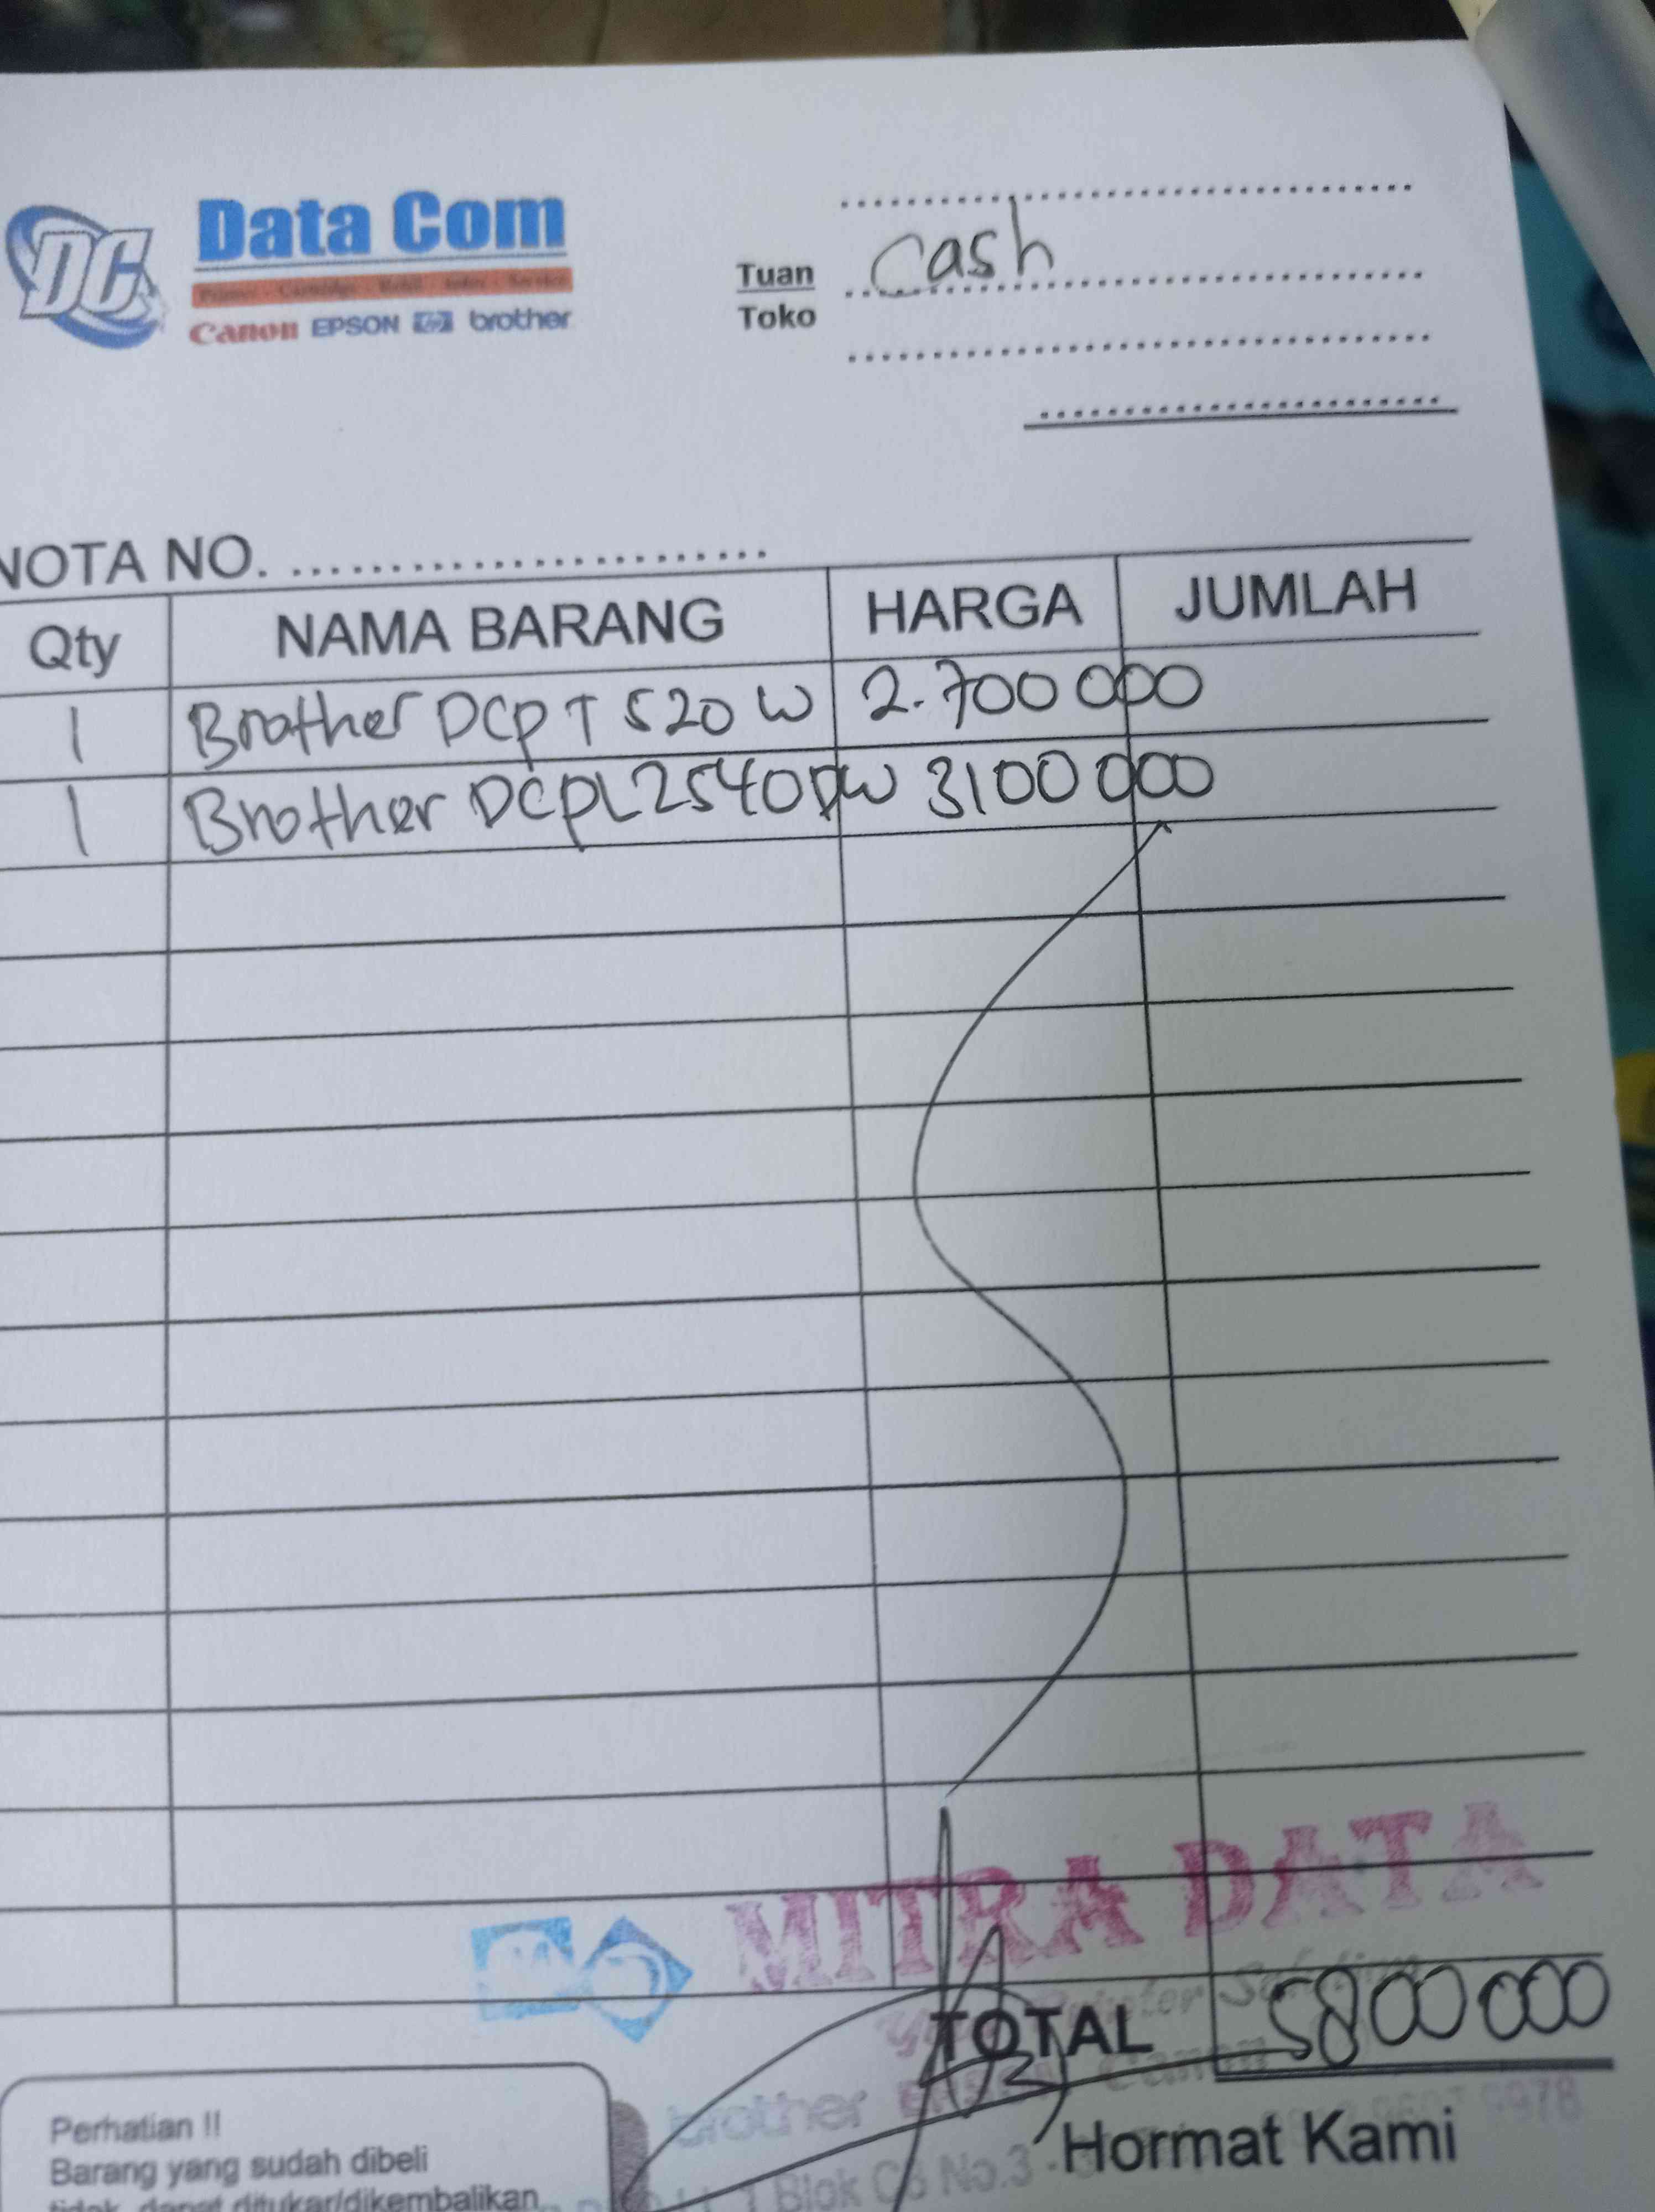 DC
Data Com
Printer - Cartridge - Refill - Infus - Service
Canon EPSON hp brother
cash
Tuan
Toko
NOTA NO.
Qty NAMA BARANG HARGA JUMLAH
1 Brother DCP T 520 W 2.700 000
1 Brother DCPL2540DW 3100 000
MITRA DATA
TOTAL 5800 000
brother Canon
Hormat Kami
Blok C6 No.3
Perhatian !!
Barang yang sudah dibeli
tidak dapat ditukar/dikembalikan